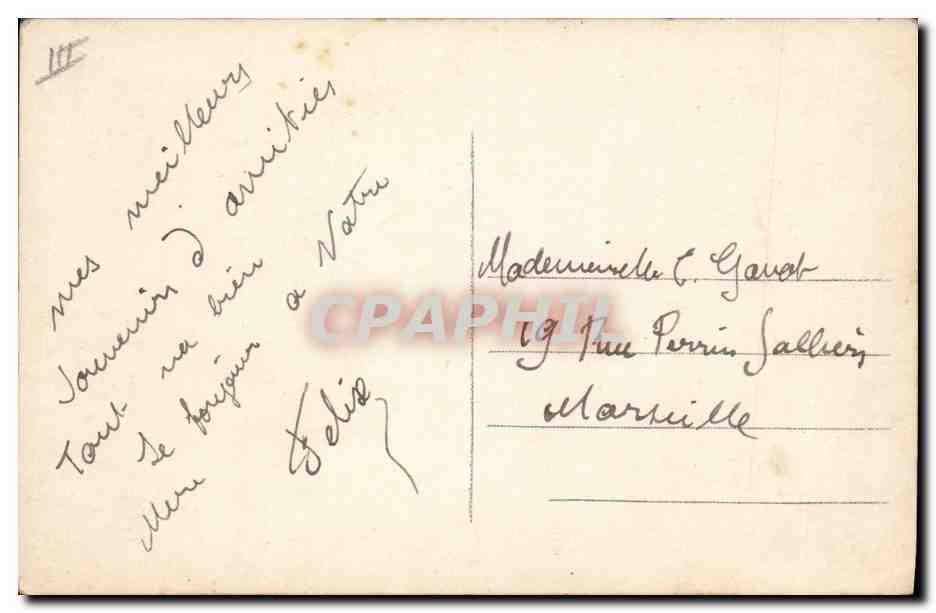 III
mes meilleurs
Souvenirs d amitiés
Tout va bien
Le bonjour a Votre
Mère
Felix
Mademoiselle C. Gavot
19 Rue Perrin Sallier
Marseille
CPAPHIL